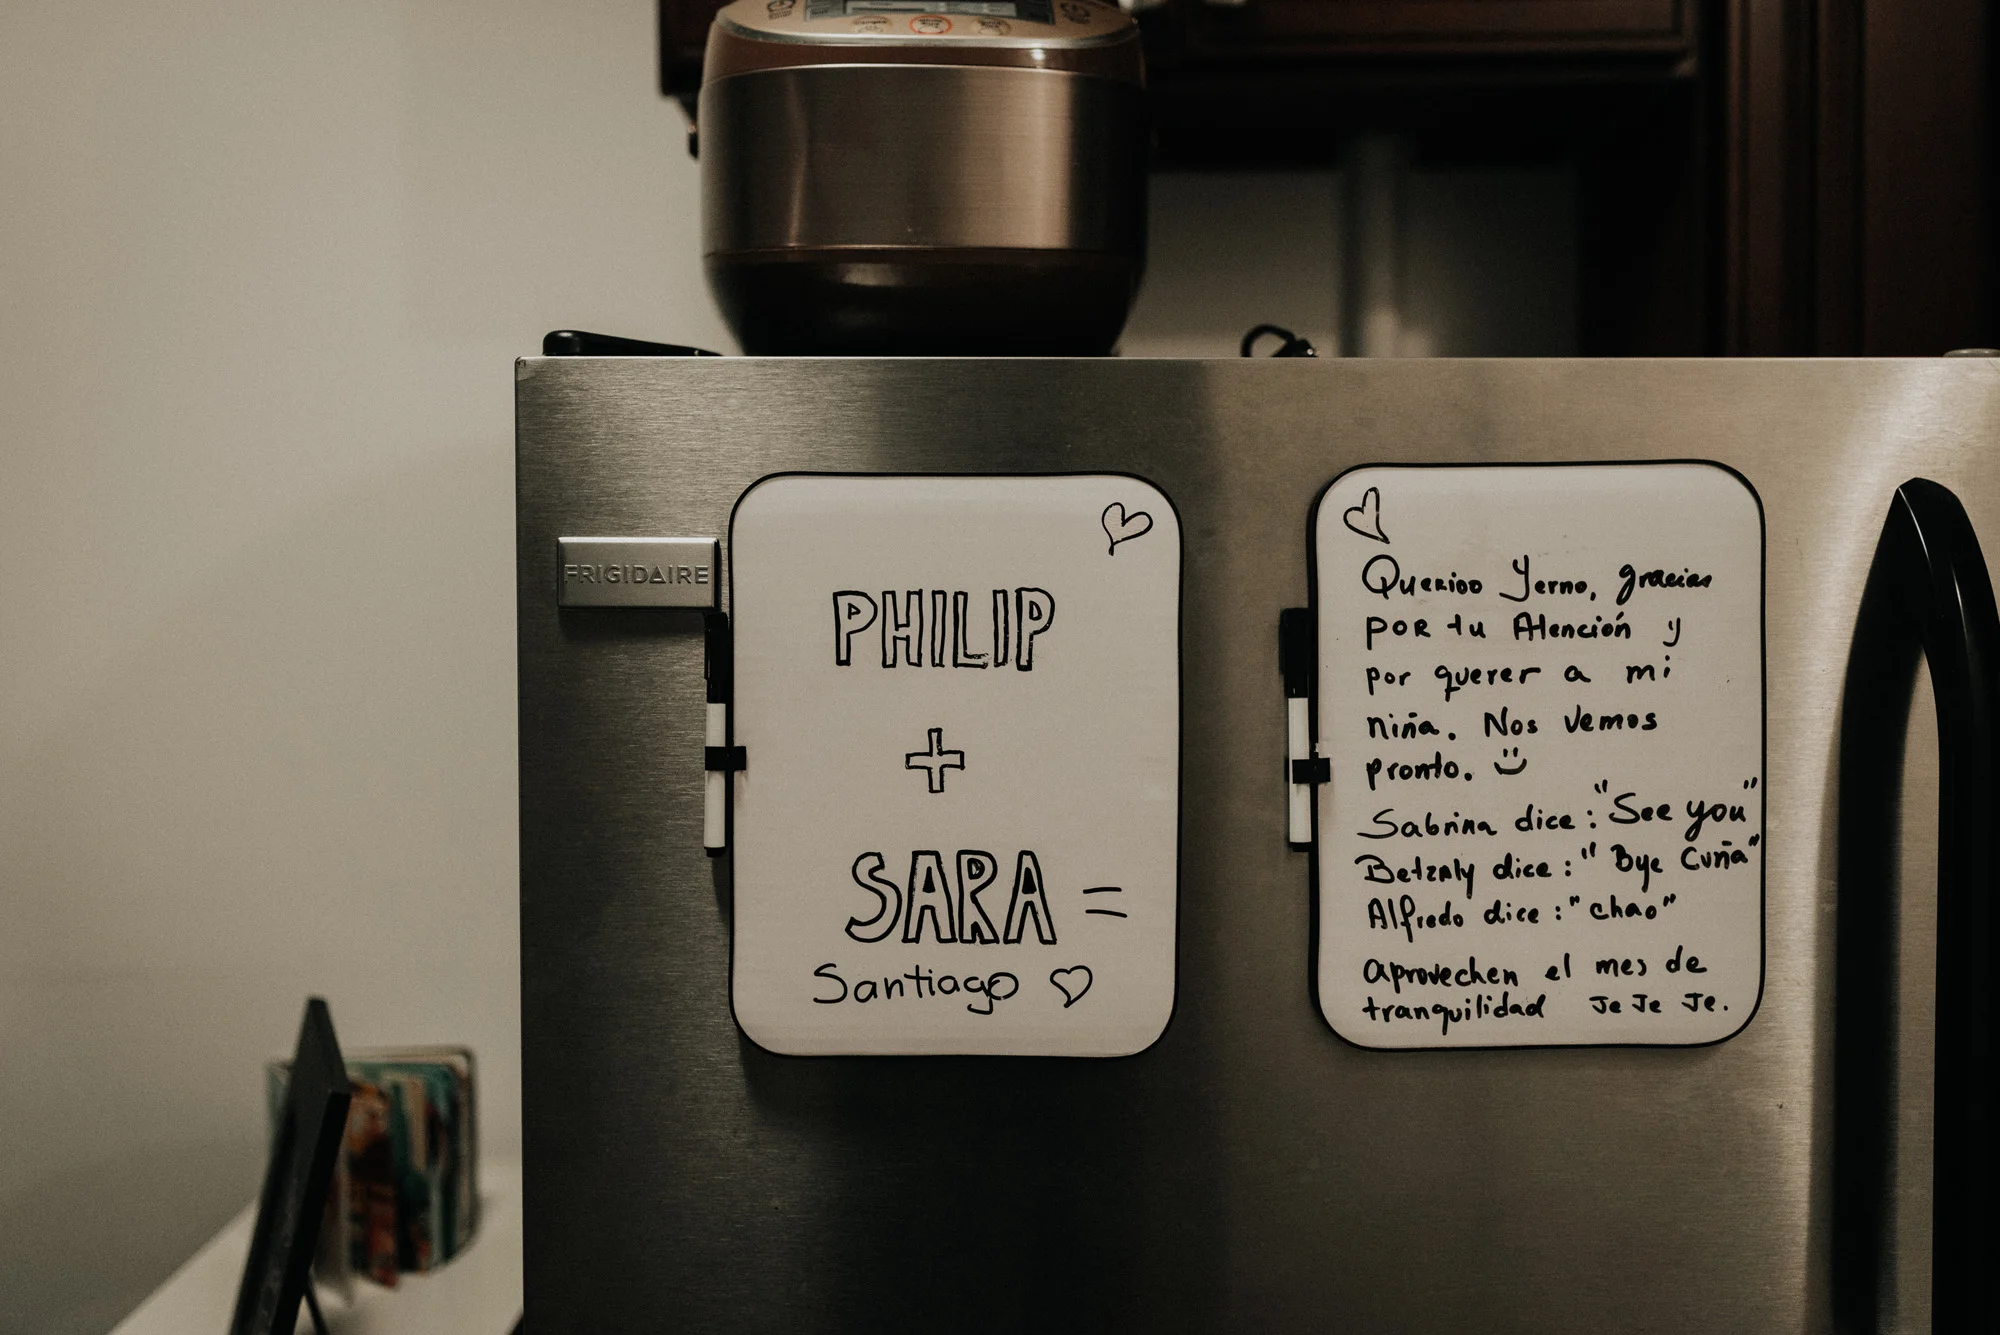 FRIGIDAIRE
PHILIP
+
SARA =
Santiago
Querido Yerno, gracias
por tu Atención y
por querer a mi
niña. Nos vemos
pronto.
Sabrina dice: "See you"
Betzaly dice: "Bye Cuña"
Alfredo dice: "chao"
Aprovechen el mes de
tranquilidad Je Je Je.